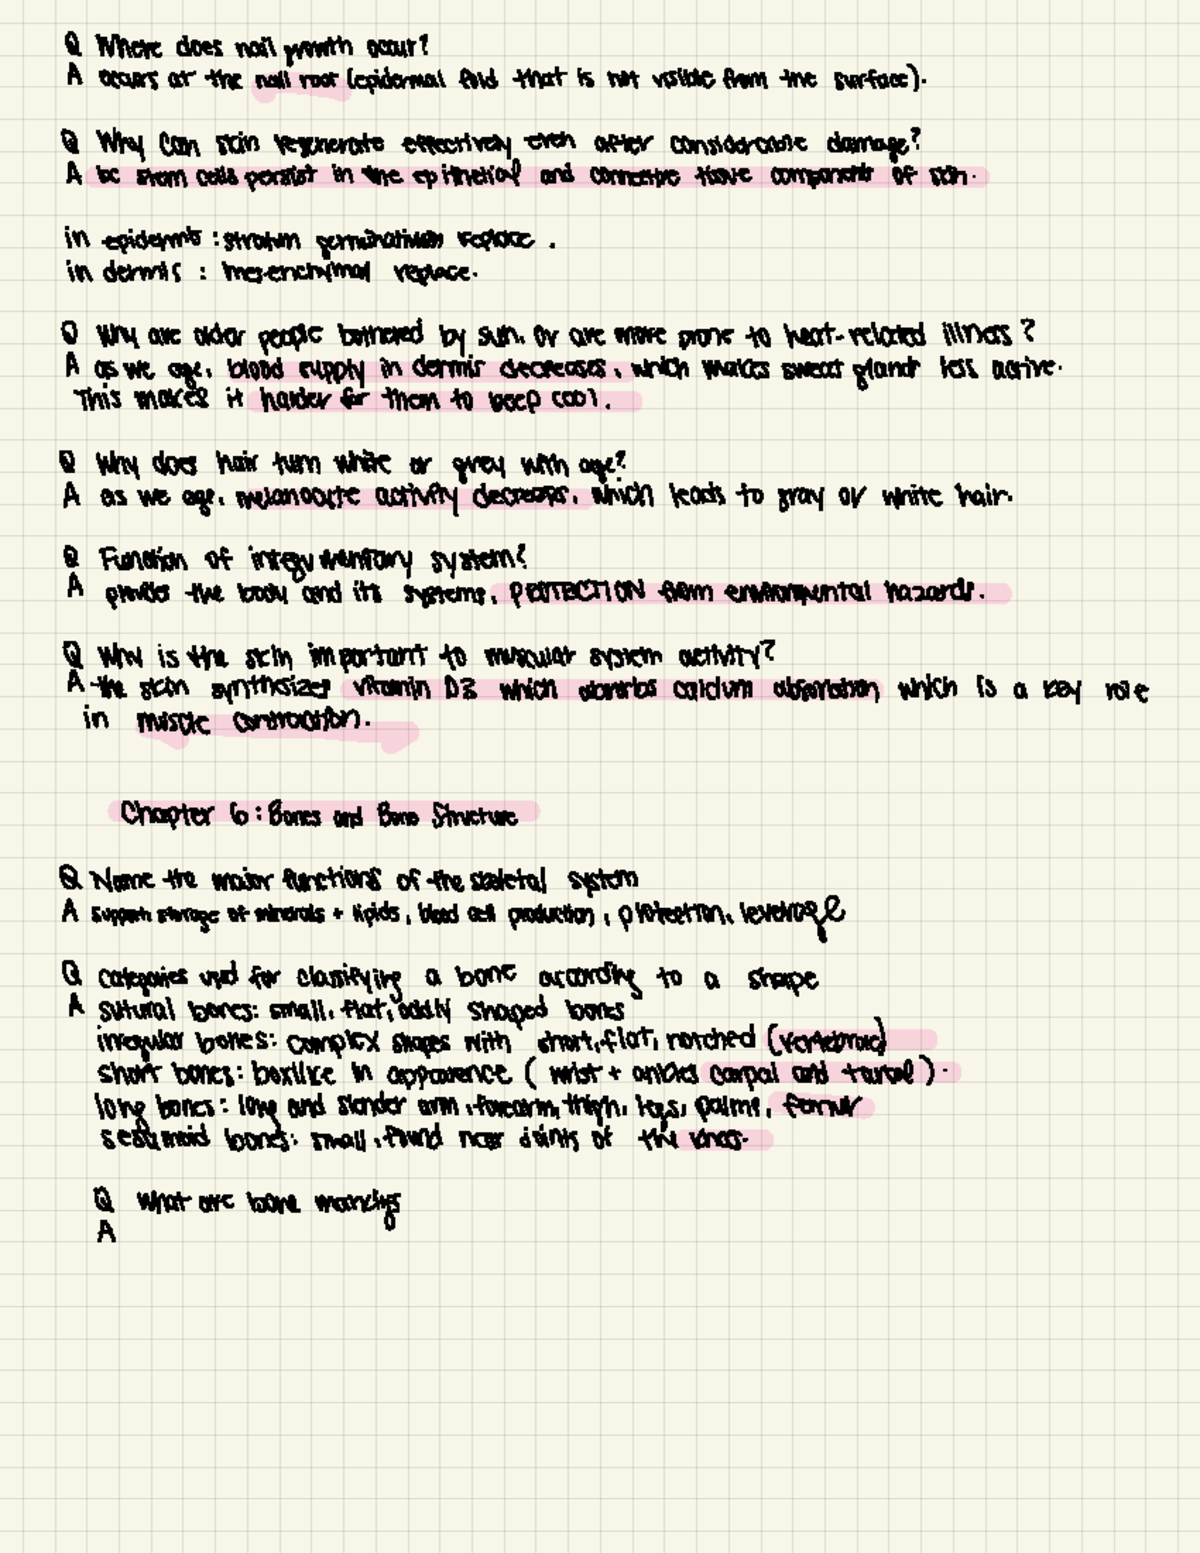 Q Where does nail growth occur?
A occurs at the nail root (epidermal fold that is not visible from the surface).
Q Why can skin regenerate effectively even after considerable damage?
A bc stem cells persist in the epithelial and connective tissue components of skin.
in epidermis : stratum germinativum replace .
in dermis : mesenchymal replace.
Q Why are older people bothered by sun. or are more prone to heat-related illness ?
A as we age, blood supply in dermis decreases, which makes sweat gland less active.
This makes it harder for them to keep cool.
Q Why does hair turn white or grey with age?
A as we age, melanocyte activity decreases, which leads to gray or white hair.
Q Function of integumentary system?
A provides the body and its systems, PROTECTION from environmental hazards.
Q Why is the skin important to muscular system activity?
A the skin synthesizes vitamin D3 which calcium absorption which is a key role
in muscle contraction.
Chapter 6 : Bones and Bone Structure
Q Name the major functions of the skeletal system
A support, storage of minerals + lipids, blood cell production , protection, leverage
Q categories used for classifying a bone according to a shape
A sutural bones: small, flat, oddly shaped bones
irregular bones: complex shapes with short, flat, notched (vertebrae)
short bones: boxlike in appearence ( wrist + ankles carpal and tarsal ).
long bones: long and slender arm, forearm, thigh, legs, palms, femur
sesamoid bones: small, found near joints of the knees.
Q What are bone markings
A